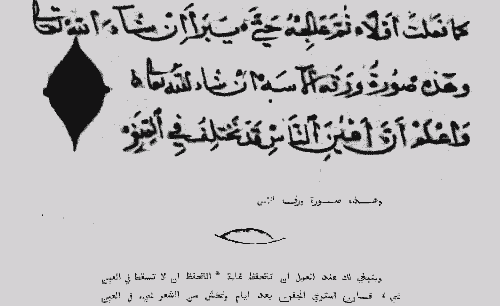 كما فعلت أولاً ثم عالجه حتى يبرأ إن شاء الله تعالى
وهذه صورة ورقة الآسه إن شاء الله تعالى
واعلم أن أعين الناس قد تختلف في التبزّ
وهـــذه صـــورة ورقـة الآس
وينبغي لك عند العمل ان تتحفظ غاية التحفظ ان لا تسقط في العين
شيء فـان استوى الجفن بعد ايام ونقص من الشعر شيء في العين